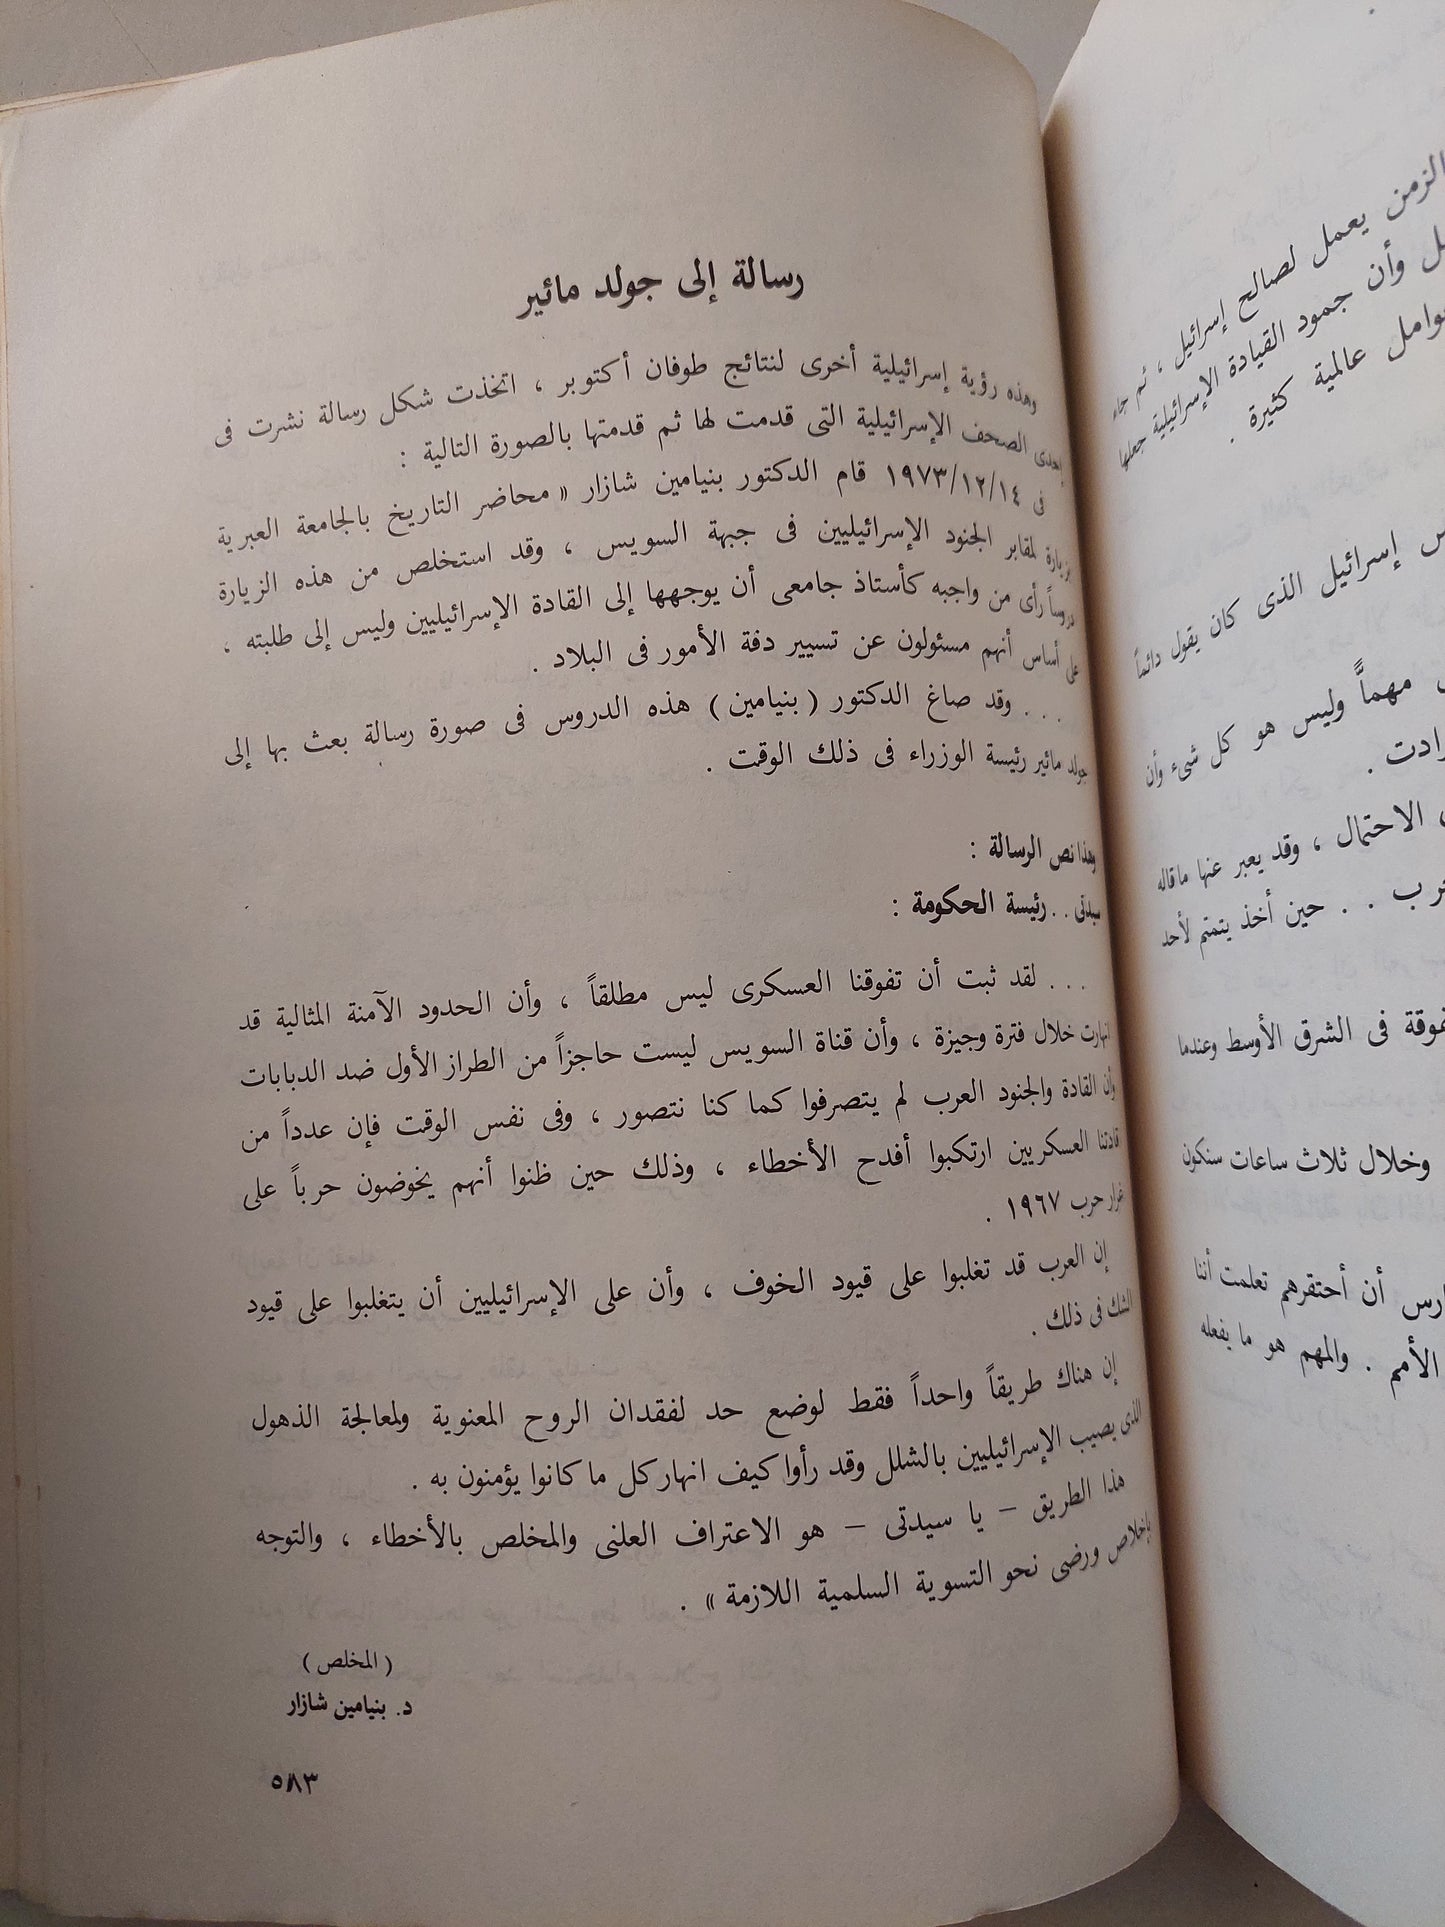 رسالة إلى جولد مائير
وهذه رؤية إسرائيلية أخرى لنتائج طوفان أكتوبر ، اتخذت شكل رسالة نشرت فى
إحدى الصحف الإسرائيلية التى قدمت لها ثم قدمتها بالصورة التالية :
فى ١٩٧٣/١٢/١٤ قام الدكتور بنيامين شازار « محاضر التاريخ بالجامعة العبرية
بزيارة لمقابر الجنود الإسرائيليين فى جبهة السويس ، وقد استخلص من هذه الزيارة
دروساً رأى من واجبه كأستاذ جامعى أن يوجهها إلى القادة الإسرائيليين وليس إلى طلبته ،
على أساس أنهم مسئولون عن تسيير دفة الأمور فى البلاد .
. . . وقد صاغ الدكتور ( بنيامين ) هذه الدروس فى صورة رسالة بعث بها إلى
جولد مائير رئيسة الوزراء فى ذلك الوقت .
وهذا نص الرسالة :
سيدتى . . رئيسة الحكومة :
. . . لقد ثبت أن تفوقنا العسكرى ليس مطلقاً ، وأن الحدود الآمنة المثالية قد
انهارت خلال فترة وجيزة ، وأن قناة السويس ليست حاجزاً من الطراز الأول ضد الدبابات
وأن القادة والجنود العرب لم يتصرفوا كما كنا نتصور ، وفى نفس الوقت فإن عدداً من
قادتنا العسكريين ارتكبوا أفدح الأخطاء ، وذلك حين ظنوا أنهم يخوضون حرباً على
غرار حرب ١٩٦٧ .
إن العرب قد تغلبوا على قيود الخوف ، وأن على الإسرائيليين أن يتغلبوا على قيود
الشك فى ذلك .
إن هناك طريقاً واحداً فقط لوضع حد لفقدان الروح المعنوية ولمعالجة الذهول
الذى يصيب الإسرائيليين بالشلل وقد رأوا كيف انهار كل ما كانوا يؤمنون به .
هذا الطريق – يا سيدتى – هو الاعتراف العلنى والمخلص بالأخطاء ، والتوجه
بإخلاص ورضى نحو التسوية السلمية اللازمة » .
( المخلص )
د. بنيامين شازار
٥٨٣
الزمن يعمل لصالح إسرائيل ، ثم جاء
وأن جمود القيادة الإسرائيلية جعلها
عالمية كثيرة .
إسرائيل الذى كان يقول دائماً
مهماًّ وليس هو كل شىء وأن
الاحتمال ، وقد يعبر عنها ما قاله
. . حين أخذ يتمتم لأحد
فى الشرق الأوسط وعندما
وخلال ثلاث ساعات سنكون
أن أحتقرهم تعلمت أننا
الأمم . والمهم هو ما يفعله